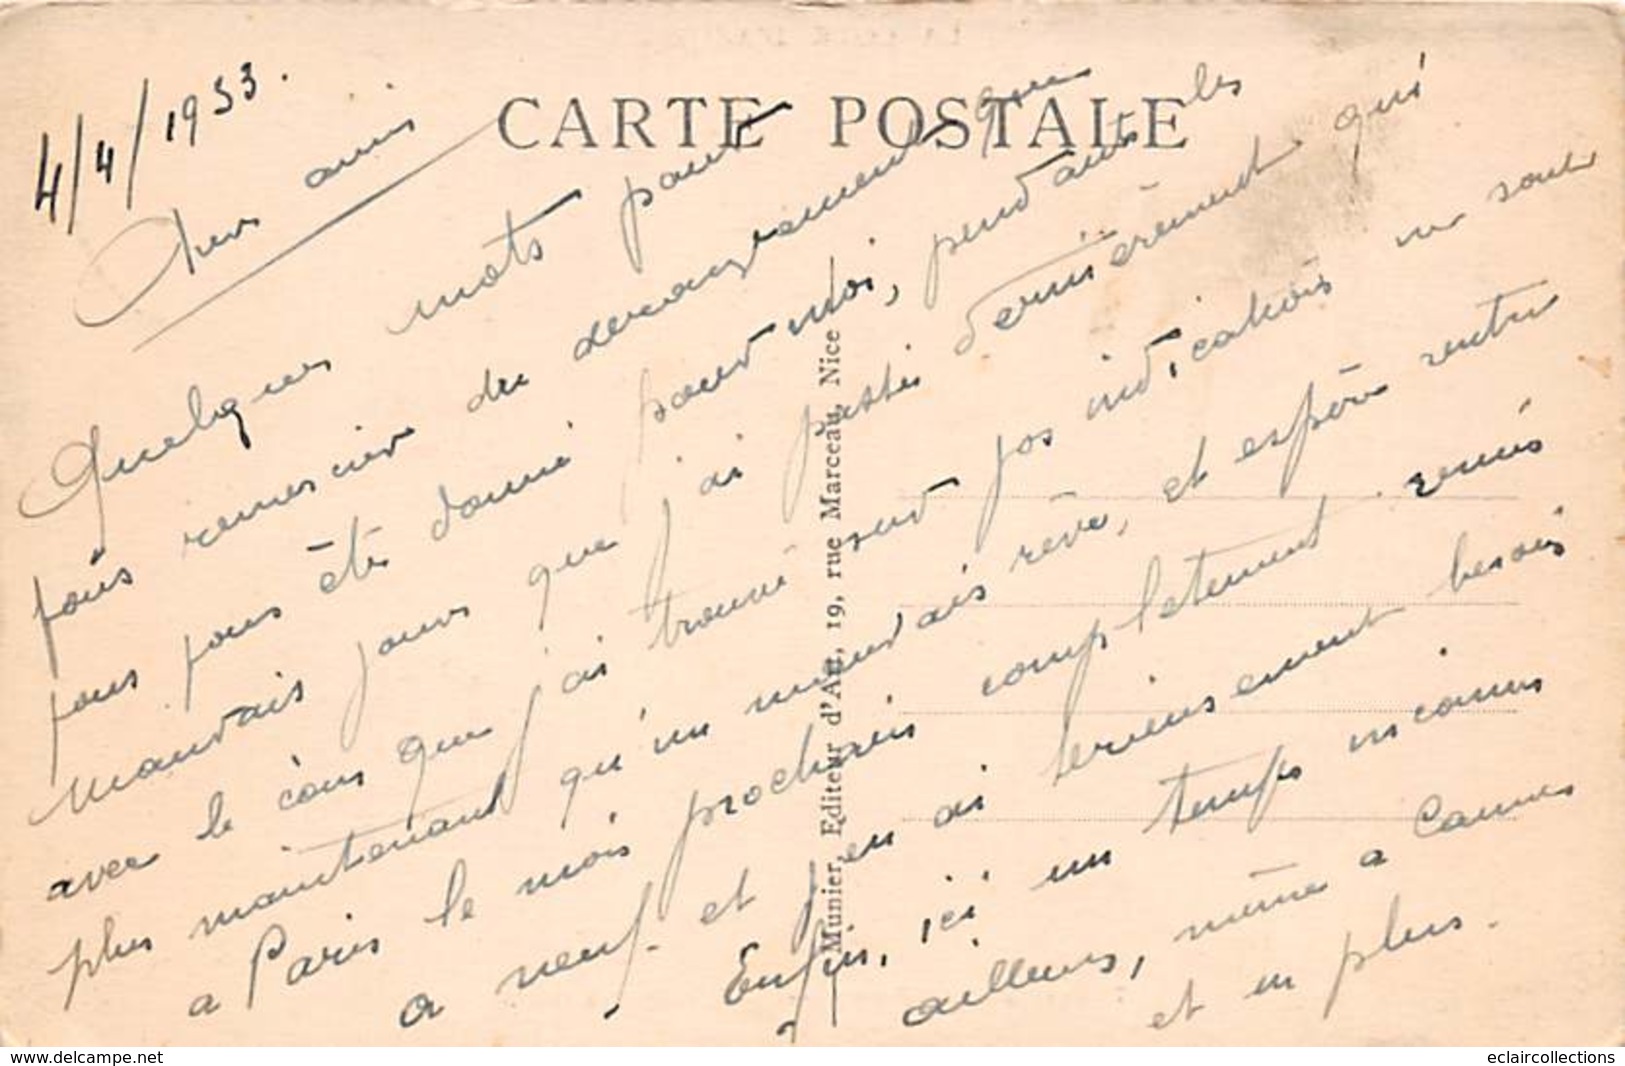 4/4/1953.
CARTE POSTALE
Chers amis
Quelques mots pour
vous remercier du derangement que
vous vous êtes donné pour moi, pendant les
mauvais jours que j'ai passés dernièrement qui
avec le cours que j'ai trouvé sur vos indications ne sont
plus maintenant qu'un mauvais rêve, et espère rentrer
a Paris le mois prochain completement remis
a neuf. et j'en ai serieusement besoin
Enfin, ici un temps inconnu
ailleurs, même a Cannes
et en plus.
Munier, Editeur d'Art, 19, rue Marceau, Nice
www.delcampe.net
eclaircollections